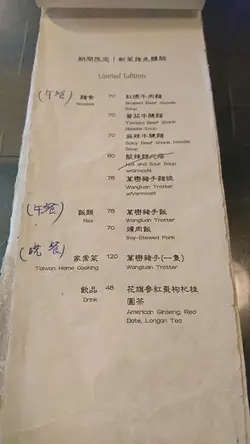 期間限定 | 新菜搶先體驗
Limited Edition
(午餐) 麵食 70 紅燒牛肉麵
Noodles Braised Beef Noodle
Soup
70 蕃茄牛腱麵
Tomato Beef Shank
Noodle Soup
70 麻辣牛腱麵
Spicy Beef Shank Noodle
Soup
60 酸辣麵疙瘩
Hot and Sour Soup
w/Gnocchi
78 萬巒豬手麵線
Wangluan Trotter
w/Vermicelli
(午餐) 飯類 78 萬巒豬手飯
Rice Wangluan Trotter
70 爌肉飯
Soy-Stewed Pork
(晚餐) 家常菜 120 萬巒豬手(一隻)
Taiwan Home Cooking Wangluan Trotter
飲品 48 花旗參紅棗枸杞桂
Drink 圓茶
American Ginseng, Red
Date, Longan Tea